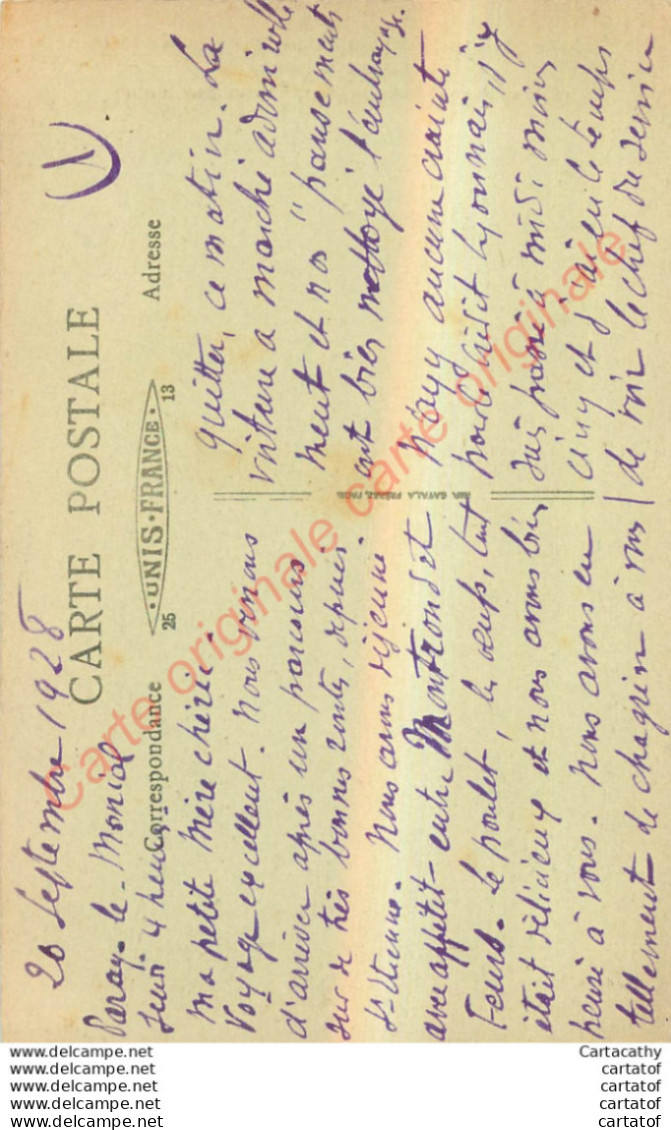 20 Septembre 1928
CARTE POSTALE
UNIS-FRANCE
25 13
Correspondance
Adresse
Paray-le-Monial
Jeudi 4 heures
Ma petite Mère chérie
Voyage excellent. Nous venons
d'arriver après un parcours
sur de très bonnes routes, depuis
St-Etienne. Nous avons déjeuné
avec appétit entre Montrond et
Feurs. Le poulet, les œufs, tout
était délicieux et nous avons bien
pensé à vous. Nous avons eu
tellement de chagrin à vous
quitter, ce matin. La
voiture a marché admirable
ment et nos "pansements"
ont bien nettoyé l'embrayage.
N'ayez aucune crainte
pour Crédit Lyonnais, j'y
suis passé à midi moins
cinq et j'ai eu le temps
de voir le chef du service
(1)
Carte originale carte originale carte originale
www.delcampe.net
www.delcampe.net
www.delcampe.net
www.delcampe.net
www.delcampe.net
Cartacathy
cartatof
cartatof
cartatof
cartatof